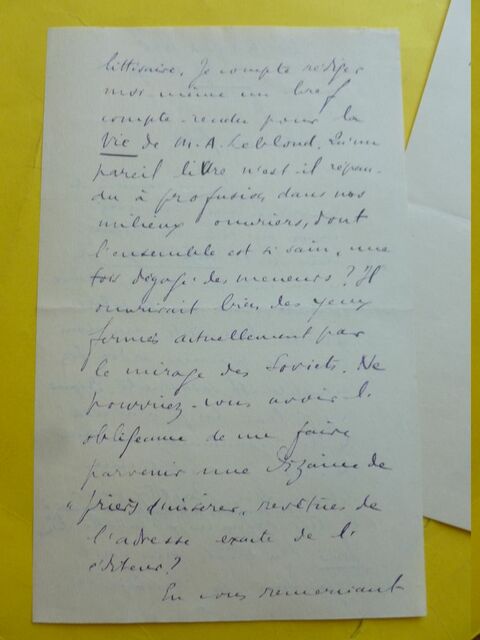 littéraire. Je compte rédiger
moi-même un bref
compte-rendu pour la
Vie de M. A. Leblond. Qu'un
pareil livre n'est-il répan-
du à profusion dans nos
milieux ouvriers, dont
l'ensemble est si sain, une
fois dégagé des meneurs ? Il
ouvrirait bien des yeux
fermés actuellement par
le mirage des Soviets. Ne
pourriez-vous avoir l'
obligeance de me faire
parvenir une dizaine de
"priers d'insérer, revêtues de
l'adresse exacte de l'
éditeur ?
En vous remerciant